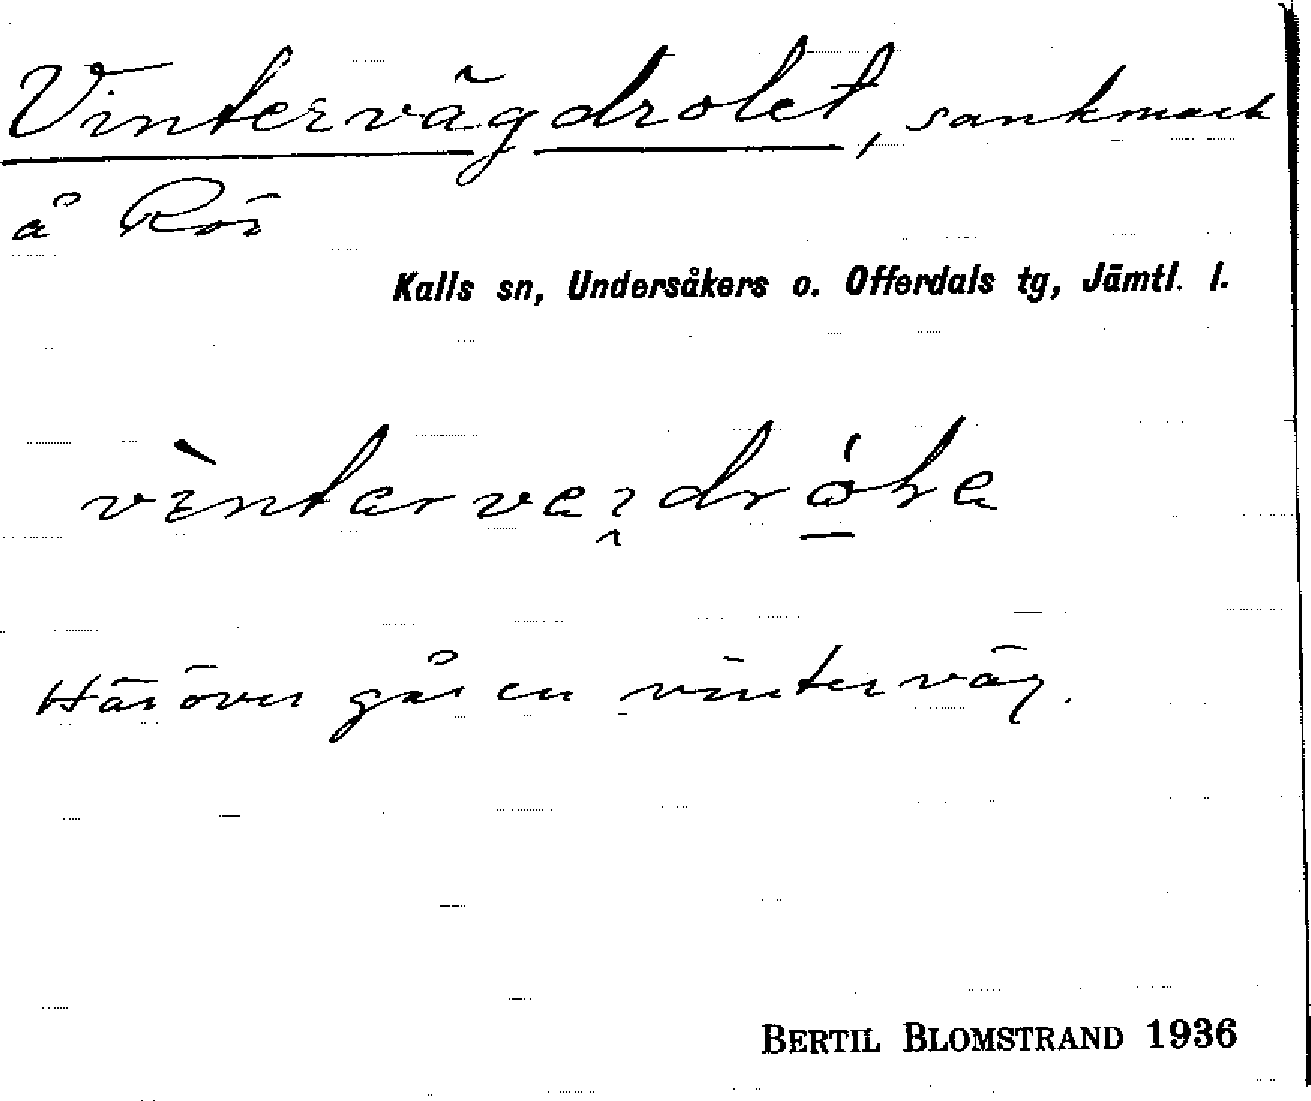 Vintervägdrolet, sankmark
å Rör
Kalls sn, Undersåkers o. Offerdals tg, Jämtl. l.
Häröver går en vinterväg.
BERTIL BLOMSTRAND 1936